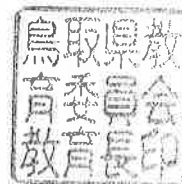 鳥取県教
育委員会
教育長印